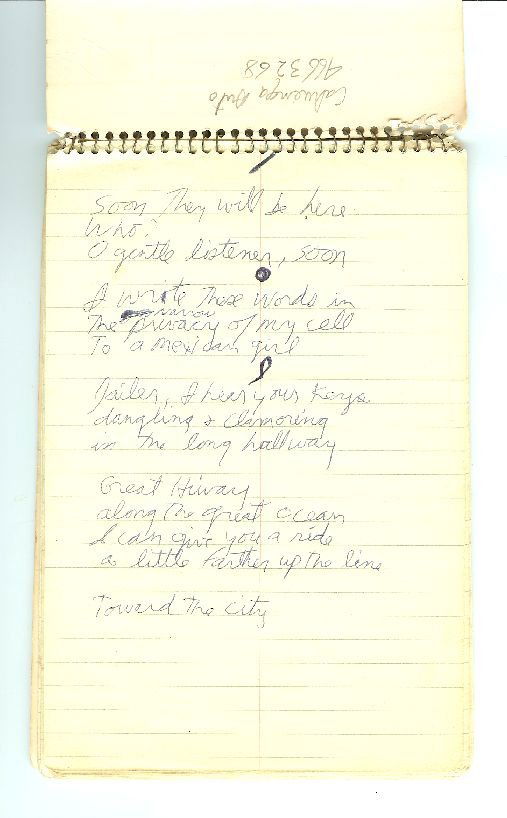 Cahuenga Auto
466 3268
Soon They will be here
Who?
O gentle listener, soon
I wrote These words in
The narrow privacy of my cell
To a mexican girl
Jailer, I hear your Keys
dangling & clamoring
in The long hallway
Great Hiway
along The great ocean
I can give you a ride
a little farther up The line
Toward The City